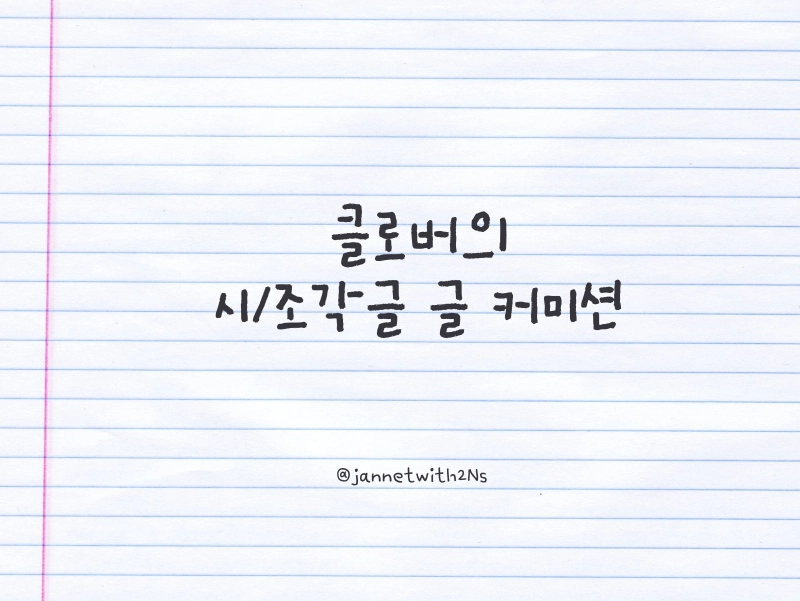 클로버의
시/조각글 글 커미션
@jannetwith2Ns